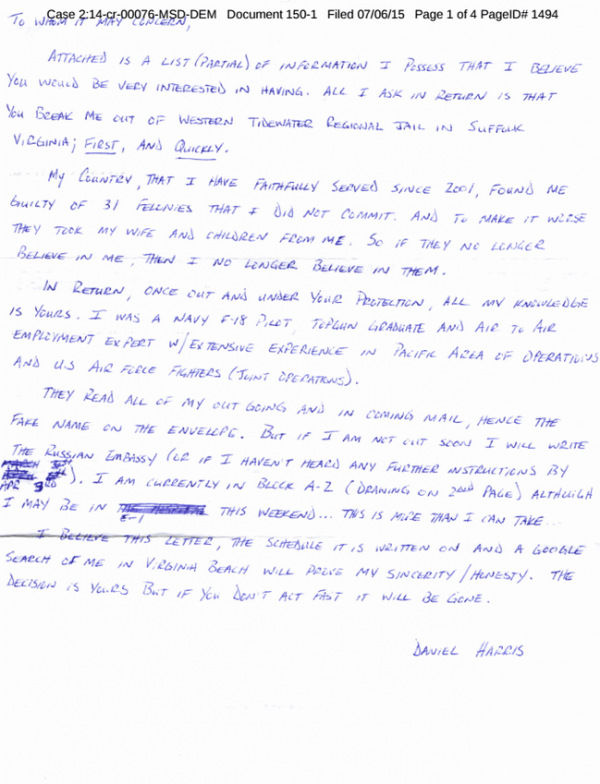 Case 2:14-cr-00076-MSD-DEM Document 150-1 Filed 07/06/15 Page 1 of 4 PageID# 1494
TO WHOM IT MAY CONCERN,
ATTACHED IS A LIST (PARTIAL) OF INFORMATION I POSSESS THAT I BELIEVE
YOU WOULD BE VERY INTERESTED IN HAVING. ALL I ASK IN RETURN IS THAT
YOU BREAK ME OUT OF WESTERN TIDEWATER REGIONAL JAIL IN SUFFOLK
VIRGINIA; FIRST, AND QUICKLY.
MY COUNTRY, THAT I HAVE FAITHFULLY SERVED SINCE 2001, FOUND ME
GUILTY OF 31 FELONIES THAT I DID NOT COMMIT. AND TO MAKE IT WORSE
THEY TOOK MY WIFE AND CHILDREN FROM ME. SO IF THEY NO LONGER
BELIEVE IN ME, THEN I NO LONGER BELIEVE IN THEM.
IN RETURN, ONCE OUT AND UNDER YOUR PROTECTION, ALL MY KNOWLEDGE
IS YOURS. I WAS A NAVY F-18 PILOT, TOPGUN GRADUATE AND AIR TO AIR
EMPLOYMENT EXPERT W/ EXTENSIVE EXPERIENCE IN PACIFIC AREA OF OPERATIONS
AND US AIR FORCE FIGHTERS (JOINT OPERATIONS).
THEY READ ALL OF MY OUT GOING AND IN COMING MAIL, HENCE THE
FAKE NAME ON THE ENVELOPE. BUT IF I AM NOT OUT SOON I WILL WRITE
THE RUSSIAN EMBASSY (OR IF I HAVEN'T HEARD ANY FURTHER INSTRUCTIONS BY
APR 3RD). I AM CURRENTLY IN BLOCK A-2 (DRAWING ON 2ND PAGE) ALTHOUGH
I MAY BE IN E-1 THIS WEEKEND... THIS IS MORE THAN I CAN TAKE...
I BELIEVE THIS LETTER, THE SCHEDULE IT IS WRITTEN ON AND A GOOGLE
SEARCH OF ME IN VIRGINIA BEACH WILL PROVE MY SINCERITY/HONESTY. THE
DECISION IS YOURS BUT IF YOU DON'T ACT FAST IT WILL BE GONE.
DANIEL HARRIS